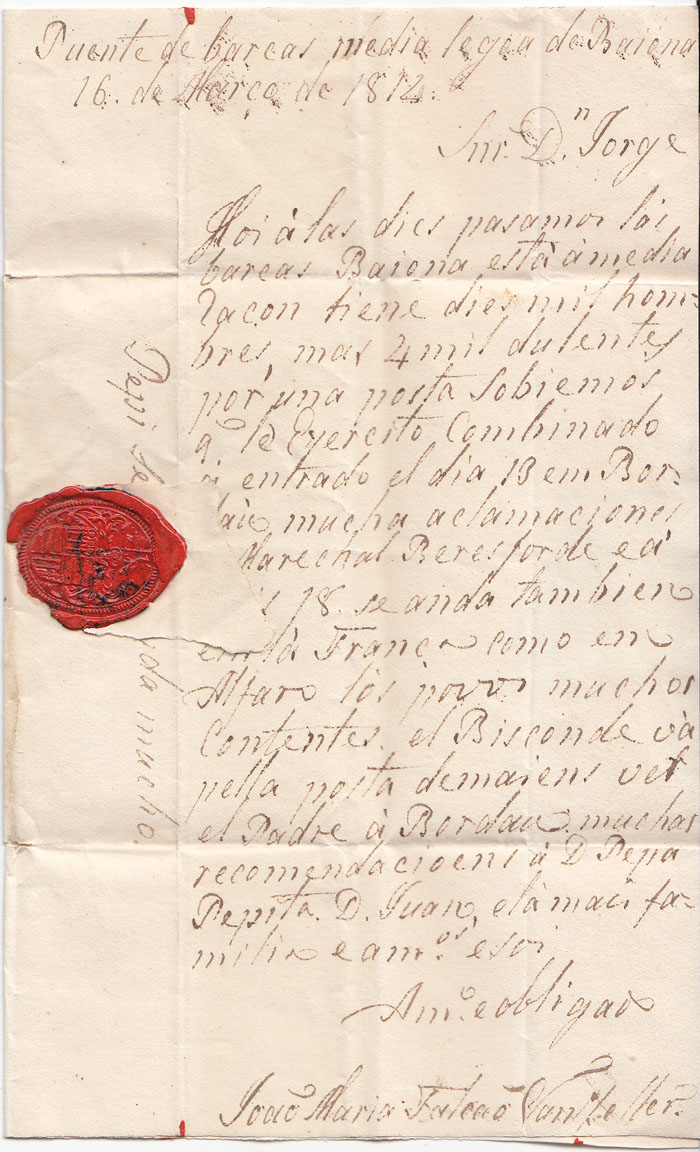 Puente de barcas média legoa de Baiona
16. de Março de 1814.
Snr. D.n Jorge
Hoi à las dies pasamos las
barcas Baiona està à media
racon tiene dies mil hom-
bres, mas 4 mil dulentes
por una posta Sobiemos
q.e le Exercito Combinado
entrado el dia 13 em Bor-
daù mucha aclamaciones
Marechal Beresforde e à
18. se anda tambien
em là França como en
Alfaro los povos muchos
Contentes. el Bisconde và
pella posta demaiens ver
el Padre à Bordau. muchas
recomendacioens à D. Pepa
Pepita. D. Juan, e là mais fa-
milia e am.os e soi
Am.o e obligado
João Maria Falcaõ Vanzeller.
Pepi de
da mucho.